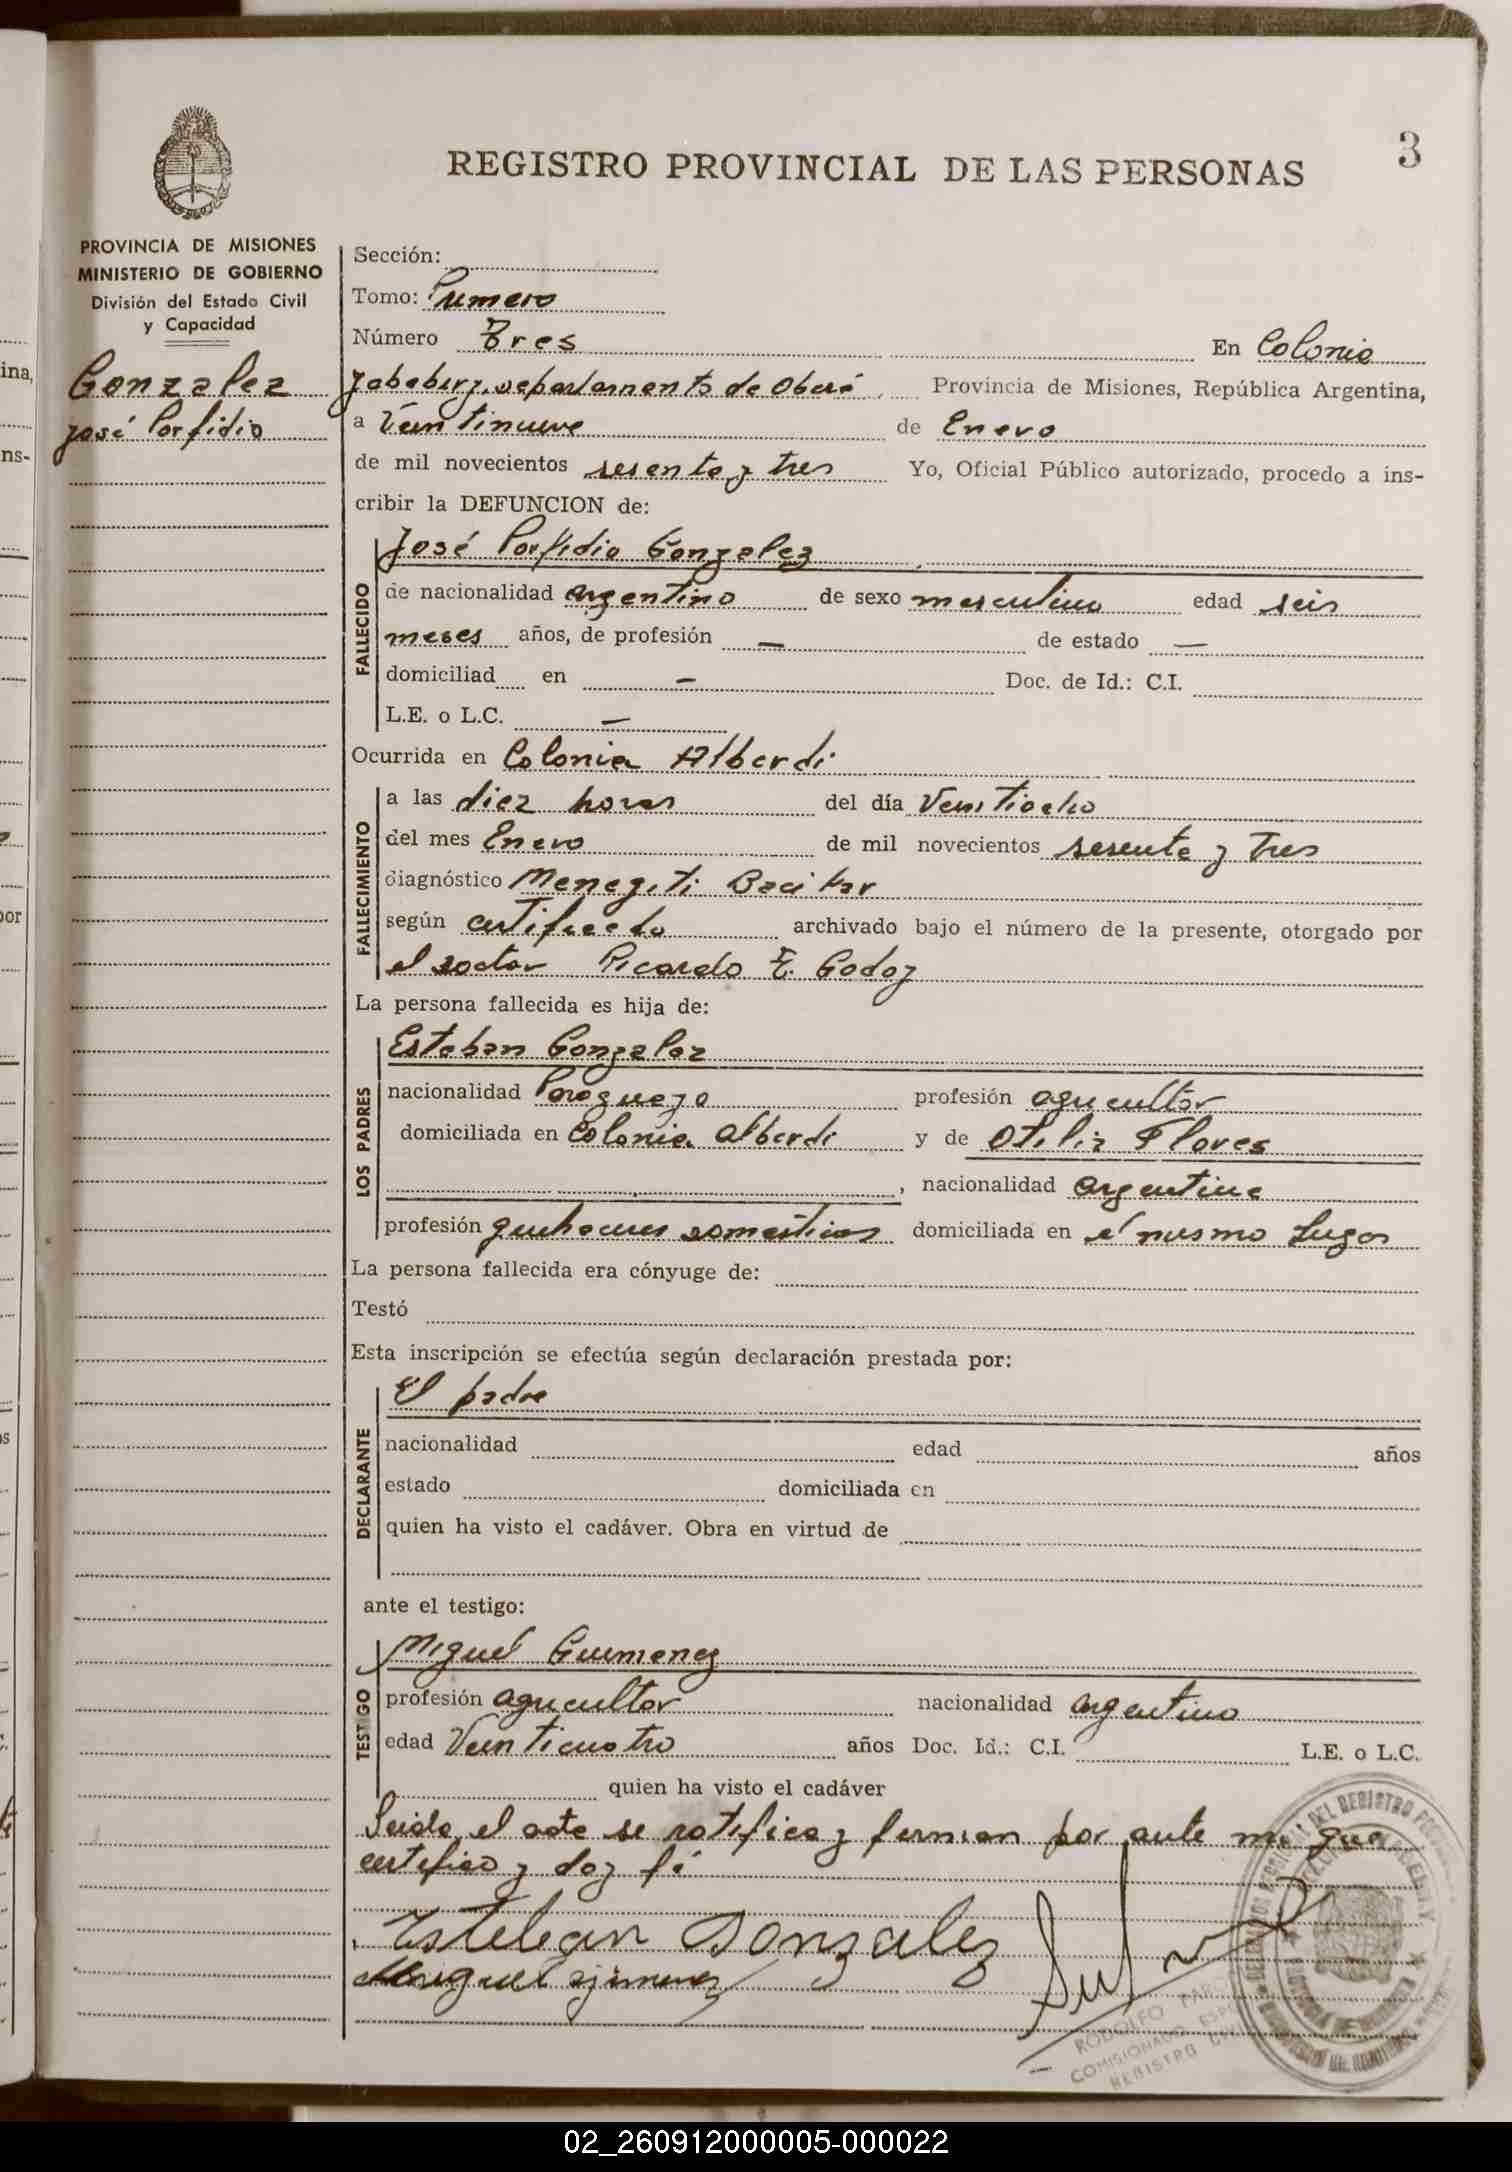 3
REGISTRO PROVINCIAL DE LAS PERSONAS
PROVINCIA DE MISIONES
MINISTERIO DE GOBIERNO
División del Estado Civil
y Capacidad
Gonzalez
José Porfidio
Sección:
Tomo: Primero
Número Tres En Colonia
Yabebiry, departamento de Oberá Provincia de Misiones, República Argentina,
a Veintinueve de Enero
de mil novecientos sesenta y tres Yo, Oficial Público autorizado, procedo a ins-
cribir la DEFUNCION de:
FALLECIDO
José Porfidio Gonzalez
de nacionalidad argentino de sexo masculino edad seis
meses años, de profesión — de estado —
domiciliad en — Doc. de Id.: C.I.
L.E. o L.C. —
Ocurrida en Colonia Alberdi
FALLECIMIENTO
a las diez horas del día Veintiocho
del mes Enero de mil novecientos sesenta y tres
diagnóstico Menegiti
según certificado archivado bajo el número de la presente, otorgado por
el doctor Ricardo E. Godoy
La persona fallecida es hija de:
LOS PADRES
Esteban Gonzalez
nacionalidad Paraguayo profesión agricultor
domiciliada en Colonia Alberdi y de Otilia Flores
, nacionalidad argentina
profesión quehaceres domesticos domiciliada en el mismo Lugar
La persona fallecida era cónyuge de:
Testó
Esta inscripción se efectúa según declaración prestada por:
DECLARANTE
El padre
nacionalidad edad años
estado domiciliada en
quien ha visto el cadáver. Obra en virtud de
ante el testigo:
TESTIGO
Miguel Guimenez
profesión agricultor nacionalidad argentino
edad Veinticuatro años Doc. Id.: C.I. L.E. o L.C.
quien ha visto el cadáver
Leida el acta se ratifica y firman por ante mi que
certifico y doy fé
Esteban Gonzalez
Miguel
RODOLFO
COMISIONADO
REGISTRO
02_260912000005-000022